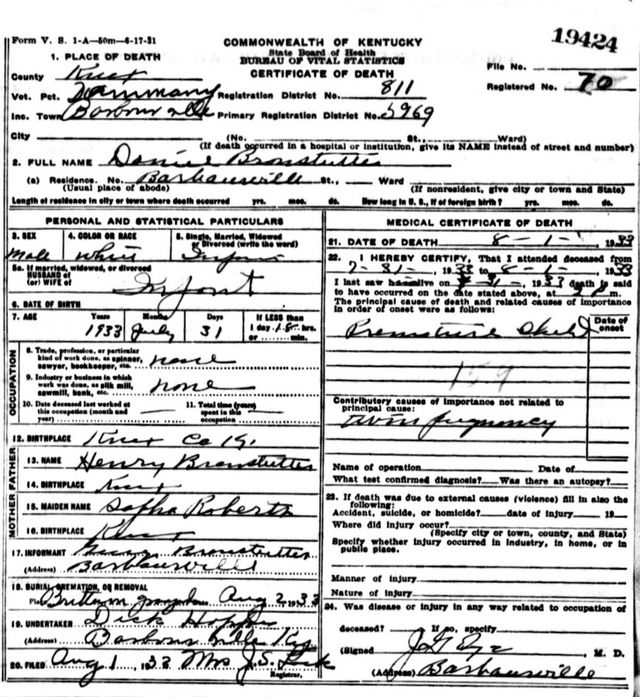 Form V. S. 1-A—50m—6-17-31
COMMONWEALTH OF KENTUCKY
State Board of Health
BUREAU OF VITAL STATISTICS
CERTIFICATE OF DEATH
19424
File No.
Registered No. 70
1. PLACE OF DEATH
County Knox
Vot. Pct. Registration District No. 811
Inc. Town Barbourville Primary Registration District No. 5969
City (No. St., Ward)
(If death occurred in a hospital or institution, give its NAME instead of street and number)
2. FULL NAME Daniel Bronstutter
(a) Residence. No. Barbausville St., Ward
(Usual place of abode) (If nonresident, give city or town and State)
Length of residence in city or town where death occurred yrs. mos. ds. How long in U. S., if of foreign birth? yrs. mos. ds.
PERSONAL AND STATISTICAL PARTICULARS
3. SEX Male
4. COLOR OR RACE White
5. Single, Married, Widowed or Divorced (write the word)
5a. If married, widowed, or divorced
HUSBAND of
(or) WIFE of Infant
6. DATE OF BIRTH
7. AGE Years Months Days If LESS than
1933 July 31 1 day hrs.
or min.
OCCUPATION
8. Trade, profession, or particular kind of work done, as spinner, sawyer, bookkeeper, etc. none
9. Industry or business in which work was done, as silk mill, sawmill, bank, etc. none
10. Date deceased last worked at this occupation (month and year)
11. Total time (years) spent in this occupation
12. BIRTHPLACE Knox Co Ky.
MOTHER FATHER
13. NAME Henry Bronstutter
14. BIRTHPLACE Knox
15. MAIDEN NAME Sopha Roberts
16. BIRTHPLACE Knox
17. INFORMANT Bronstutter
(Address) Barbausville
18. BURIAL, CREMATION, OR REMOVAL
Aug 2 1933
19. UNDERTAKER Dick
(Address) Barbourville Ky
20. FILED Aug 1 1933 Mrs J. S.
Registrar.
MEDICAL CERTIFICATE OF DEATH
21. DATE OF DEATH 8-1- 1933
22. I HEREBY CERTIFY, That I attended deceased from
7-31- 1933 to 8-1- 1933
I last saw h alive on 1933 death is said
to have occurred on the date stated above, at m.
The principal cause of death and related causes of importance
in order of onset were as follows:
Date of onset
Premature Child
159
Contributory causes of importance not related to
principal cause:
twin pregnancy
Name of operation Date of
What test confirmed diagnosis? Was there an autopsy?
23. If death was due to external causes (violence) fill in also the
following:
Accident, suicide, or homicide? date of injury 19
Where did injury occur?
(Specify city or town, county, and State)
Specify whether injury occurred in industry, in home, or in
public place.
Manner of injury
Nature of injury
24. Was disease or injury in any way related to occupation of
deceased? If so, specify
(Signed) M. D.
(Address) Barbausville